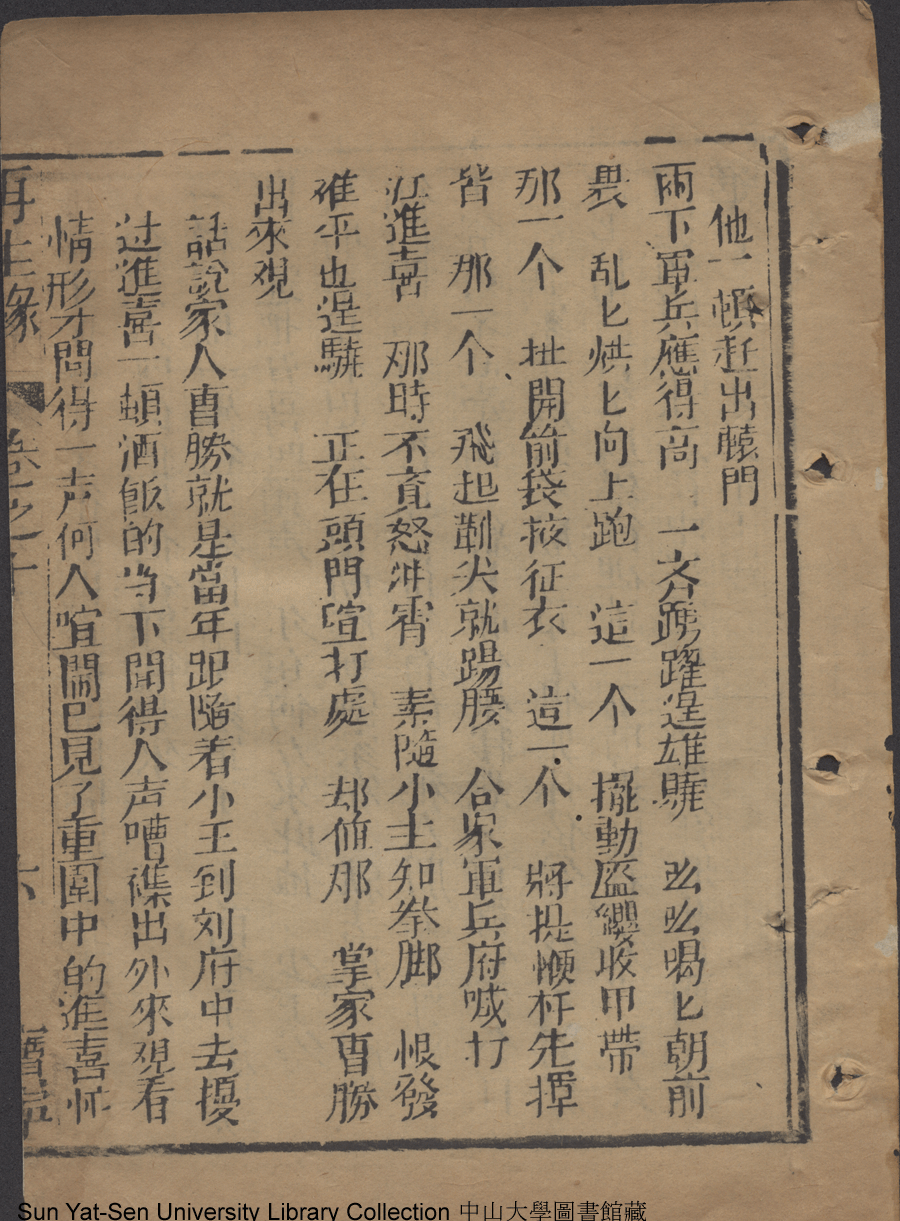 他一頓赶出轅門
兩下軍兵應得高 一齐踴躍逞雄驍 吆吆喝匕朝前
畏 乱匕烘匕向上跑 這一个 擺動盔纓收甲帶
那一个 扯開前袋掖征衣 這一个 將提鞭杆先揮
皆 那一个 飛起靴尖就踢腰 合家軍兵府喊打
江進喜 那時不竟怒冲霄 素隨小主知拳脚 恨發
難平也逞驍 正在頭門喧打處 却值那 掌家曹勝
出來覌
話說家人曹勝就是當年跟隨着小王到刘府中去擾
过進喜一頓酒飯的当下聞得人声嘈襍出外來覌看
情形才問得一声何人喧鬧已見了重圍中的進喜忙
再生緣 卷之十 六
Sun Yat-Sen University Library Collection 中山大學圖書館藏